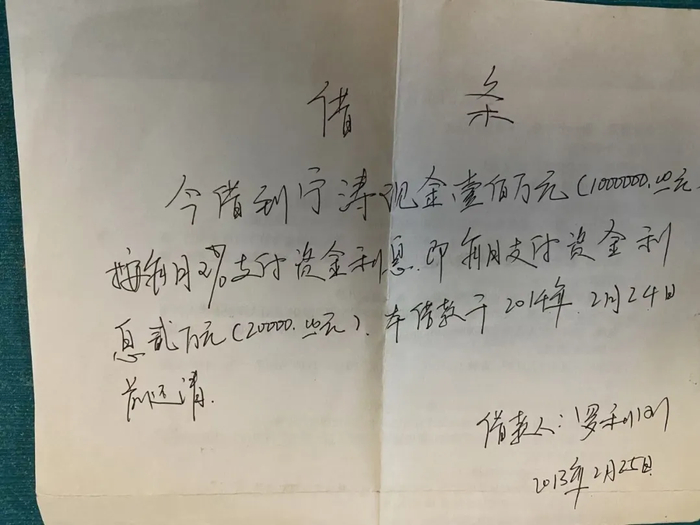 借 条
今借到宁涛现金壹佰万元(1000000.00元
按每月2%支付资金利息.即每月支付资金利
息贰万元(20000.00元).本借款于2014年.2月24日
前还清.
借款人:罗利刚
2013年2月25日.